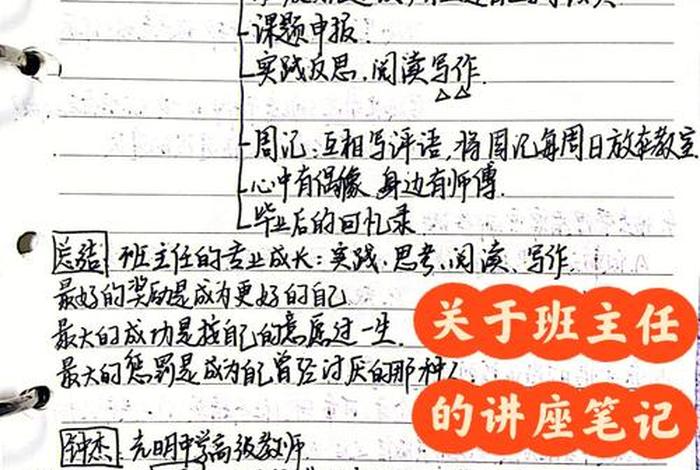 课题申报.
实践反思、阅读写作.
周记:互相写评语,将周记每周日放在教室
心中有偶像,身边有师傅.
毕业后的回忆录
总结 班主任的专业成长:实践、思考、阅读、写作.
最好的奖励是成为更好的自己
最大的成功是按自己的意愿过一生.
最大的惩罚是成为自己曾经讨厌的那种人.
关于班主任
的讲座笔记
钟杰:光明中学高级教师.